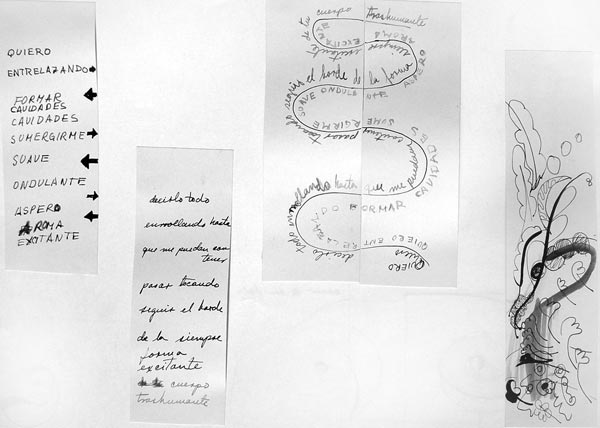 QUIERO
ENTRELAZANDO
FORMAR
CAVIDADES
CAVIDADES
SUMERGIRME
SUAVE
ONDULANTE
ASPERO
AROMA
EXITANTE
decirlo todo
enrrollando hasta
que me puedan con
tener
pasar tocando
seguir el borde
de la siempre
forma
excitante
cuerpo
trashumante
de tu cuerpo trashumante
siempre excitante
AROMA EXCITANTE
seguir el borde de la forma
ASPERO
SUAVE ONDULANTE
contener pasar tocando
SUMERGIRME
CAVIDADES
todo enrrollando hasta que me puedan
FORMAR
decirlo
Quiero
QUIERO